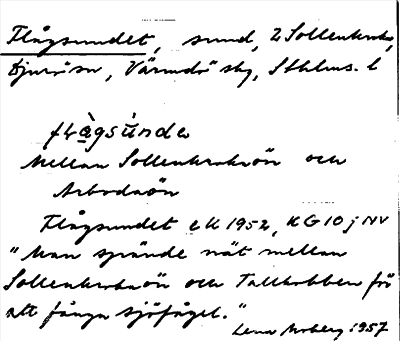 Flågsundet, sund, 2 Sollenkroka,
Djurö sn, Värmdö skg, Sthlms. l
flågsúndə
Mellan Sollenkrokaön och
Flågsundet eK 1952, KG 10 j NV
"Man spände nät mellan
Sollenkrokaön och Tallkobben för
att fånga sjöfågel."
Lena 1957